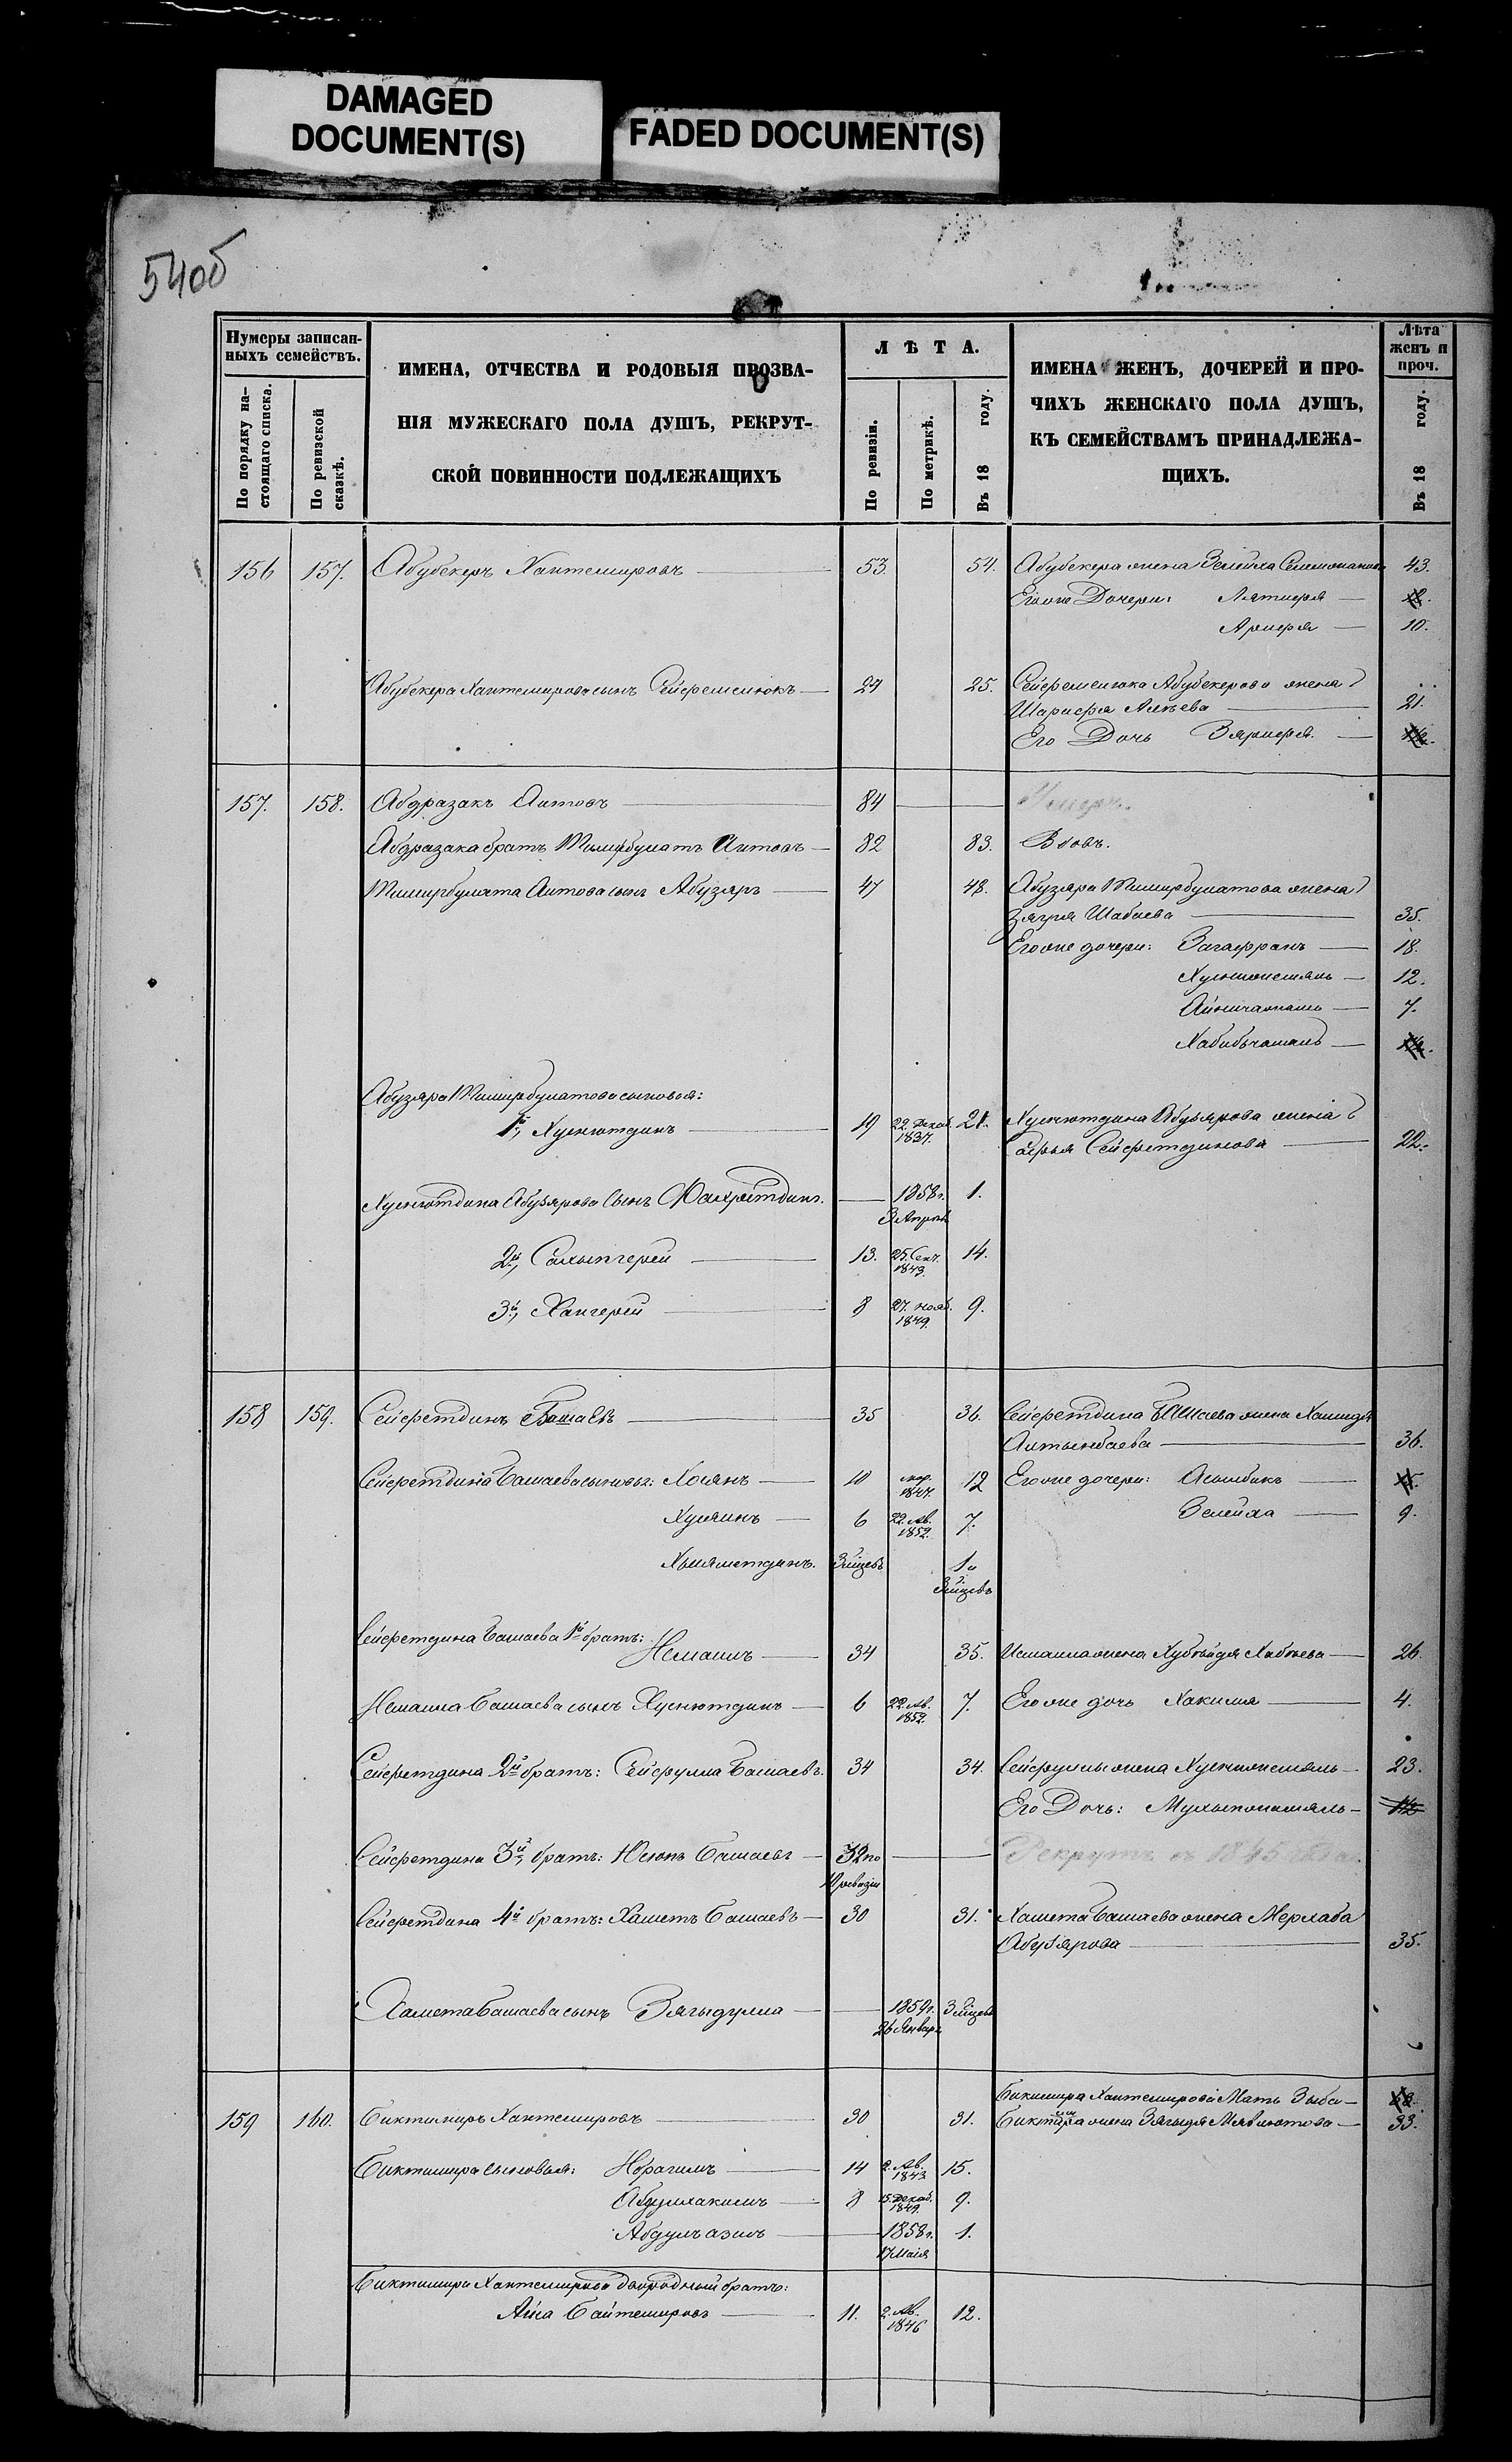 DAMAGED
DOCUMENT(S)
FADED DOCUMENT(S)
540б
Нумеры записан-
ныхъ семействъ.
По порядку на-
стоящаго списка.
По ревизской
сказкѣ.
ИМЕНА, ОТЧЕСТВА И РОДОВЫЯ ПРОЗВА-
НІЯ МУЖЕСКАГО ПОЛА ДУШЪ, РЕКРУТ-
СКОЙ ПОВИННОСТИ ПОДЛЕЖАЩИХЪ
ЛѢТА.
По ревизіи.
По метрикѣ.
Въ 18 году.
ИМЕНА ЖЕНЪ, ДОЧЕРЕЙ И ПРО-
ЧИХЪ ЖЕНСКАГО ПОЛА ДУШЪ,
КЪ СЕМЕЙСТВАМЪ ПРИНАДЛЕЖА-
ЩИХЪ.
Лѣта
женъ и
проч.
Въ 18 году.
156 157. Абубекеръ Хантемировъ 53. 54. Абубекера жена Зелейха 43.
Егоже Дочери: Лятифя
Арифя 10.
Абубекера Хантемирова сынъ Сейфемелюкъ 24 25. Сейфемелюка Абубекерова жена
Шарифя Аліева 21.
Его Дочь Зярифя.
157. 158. Абдразакъ Аитовъ 84 Умеръ.
Абдразака братъ Тимирбулатъ Аитовъ 82 83. Вдовъ.
Тимирбулата Аитова сынъ Абузяръ 47 48. Абузяра Тимирбулатова жена
Зягря Шабаева 35.
Егоже дочери: Загафранъ 18.
Хуснижемяль 12.
Айничамаль 7.
Хабибъчамаль
Абузяра Тимирбулатова сыновья:
1й, Хуснютдинъ 19 22. Декаб. 1837. 21. Хуснютдина Абузярова жена
Сафья Сейфетдинова 22.
Хуснютдина Абузярова Сынъ Фахретдинъ. 1858 г. 1.
3 Апрѣл.
2й, Салыпгерей 13. 25. Сент. 1843. 14.
3й, Хангерей 8 27. нояб. 1849. 9.
158 159. Сейфетдинъ Башаевъ 35 36. Сейфетдина Башаева жена Хамидя
Алтынбаева 36.
Сейфетдина Башаева сыновья: Хасянъ 10 1847. 12 Егоже дочери: Асылбикъ
Хусяинъ 6 22. Ав. 1852. 7. Зелейха 9.
Хисяметдинъ. 3 мѣсевъ 1 и
3 мѣсевъ
Сейфетдина Башаева 1й братъ:
Исмаилъ 34 35. Исмаила жена Хубяйдя Хабіева 26.
Исмаила Башаева сынъ Хуснютдинъ 6 22. Ав. 1852. 7. Егоже дочь Хакимя 4.
Сейфетдина 2й братъ: Сейфулла Башаевъ. 34 34. Сейфуллы жена Хуснижемяль 23.
Его Дочь:
Сейфетдина 3й братъ: Юсюпъ Башаевъ 32 по
ревизіи Рекрутъ въ 1845
Сейфетдина 4й братъ: Хаметъ Башаевъ 30 31. Хамета Башаева жена Мерхаба
Абузярова 35.
Хамета Башаева сынъ Зягыдулла 1859 г. 3 мѣсев.
26 Января
Биктимира Хантемирова Мать Зюба
159 160. Биктимиръ Хантемировъ 30 31. Биктимира жена Зягыдя Мявлютова 33.
Биктимира сыновья: Ибрагимъ 14 2. Ав. 1843 15.
Абдулхакимъ 8 15. Декаб. 1849. 9.
Абдулъазизъ 1858 г. 1.
17 Маія
Биктимира Хантемирова двоюродный братъ:
Айса Байтемировъ 11. 2. Ав. 1846 12.